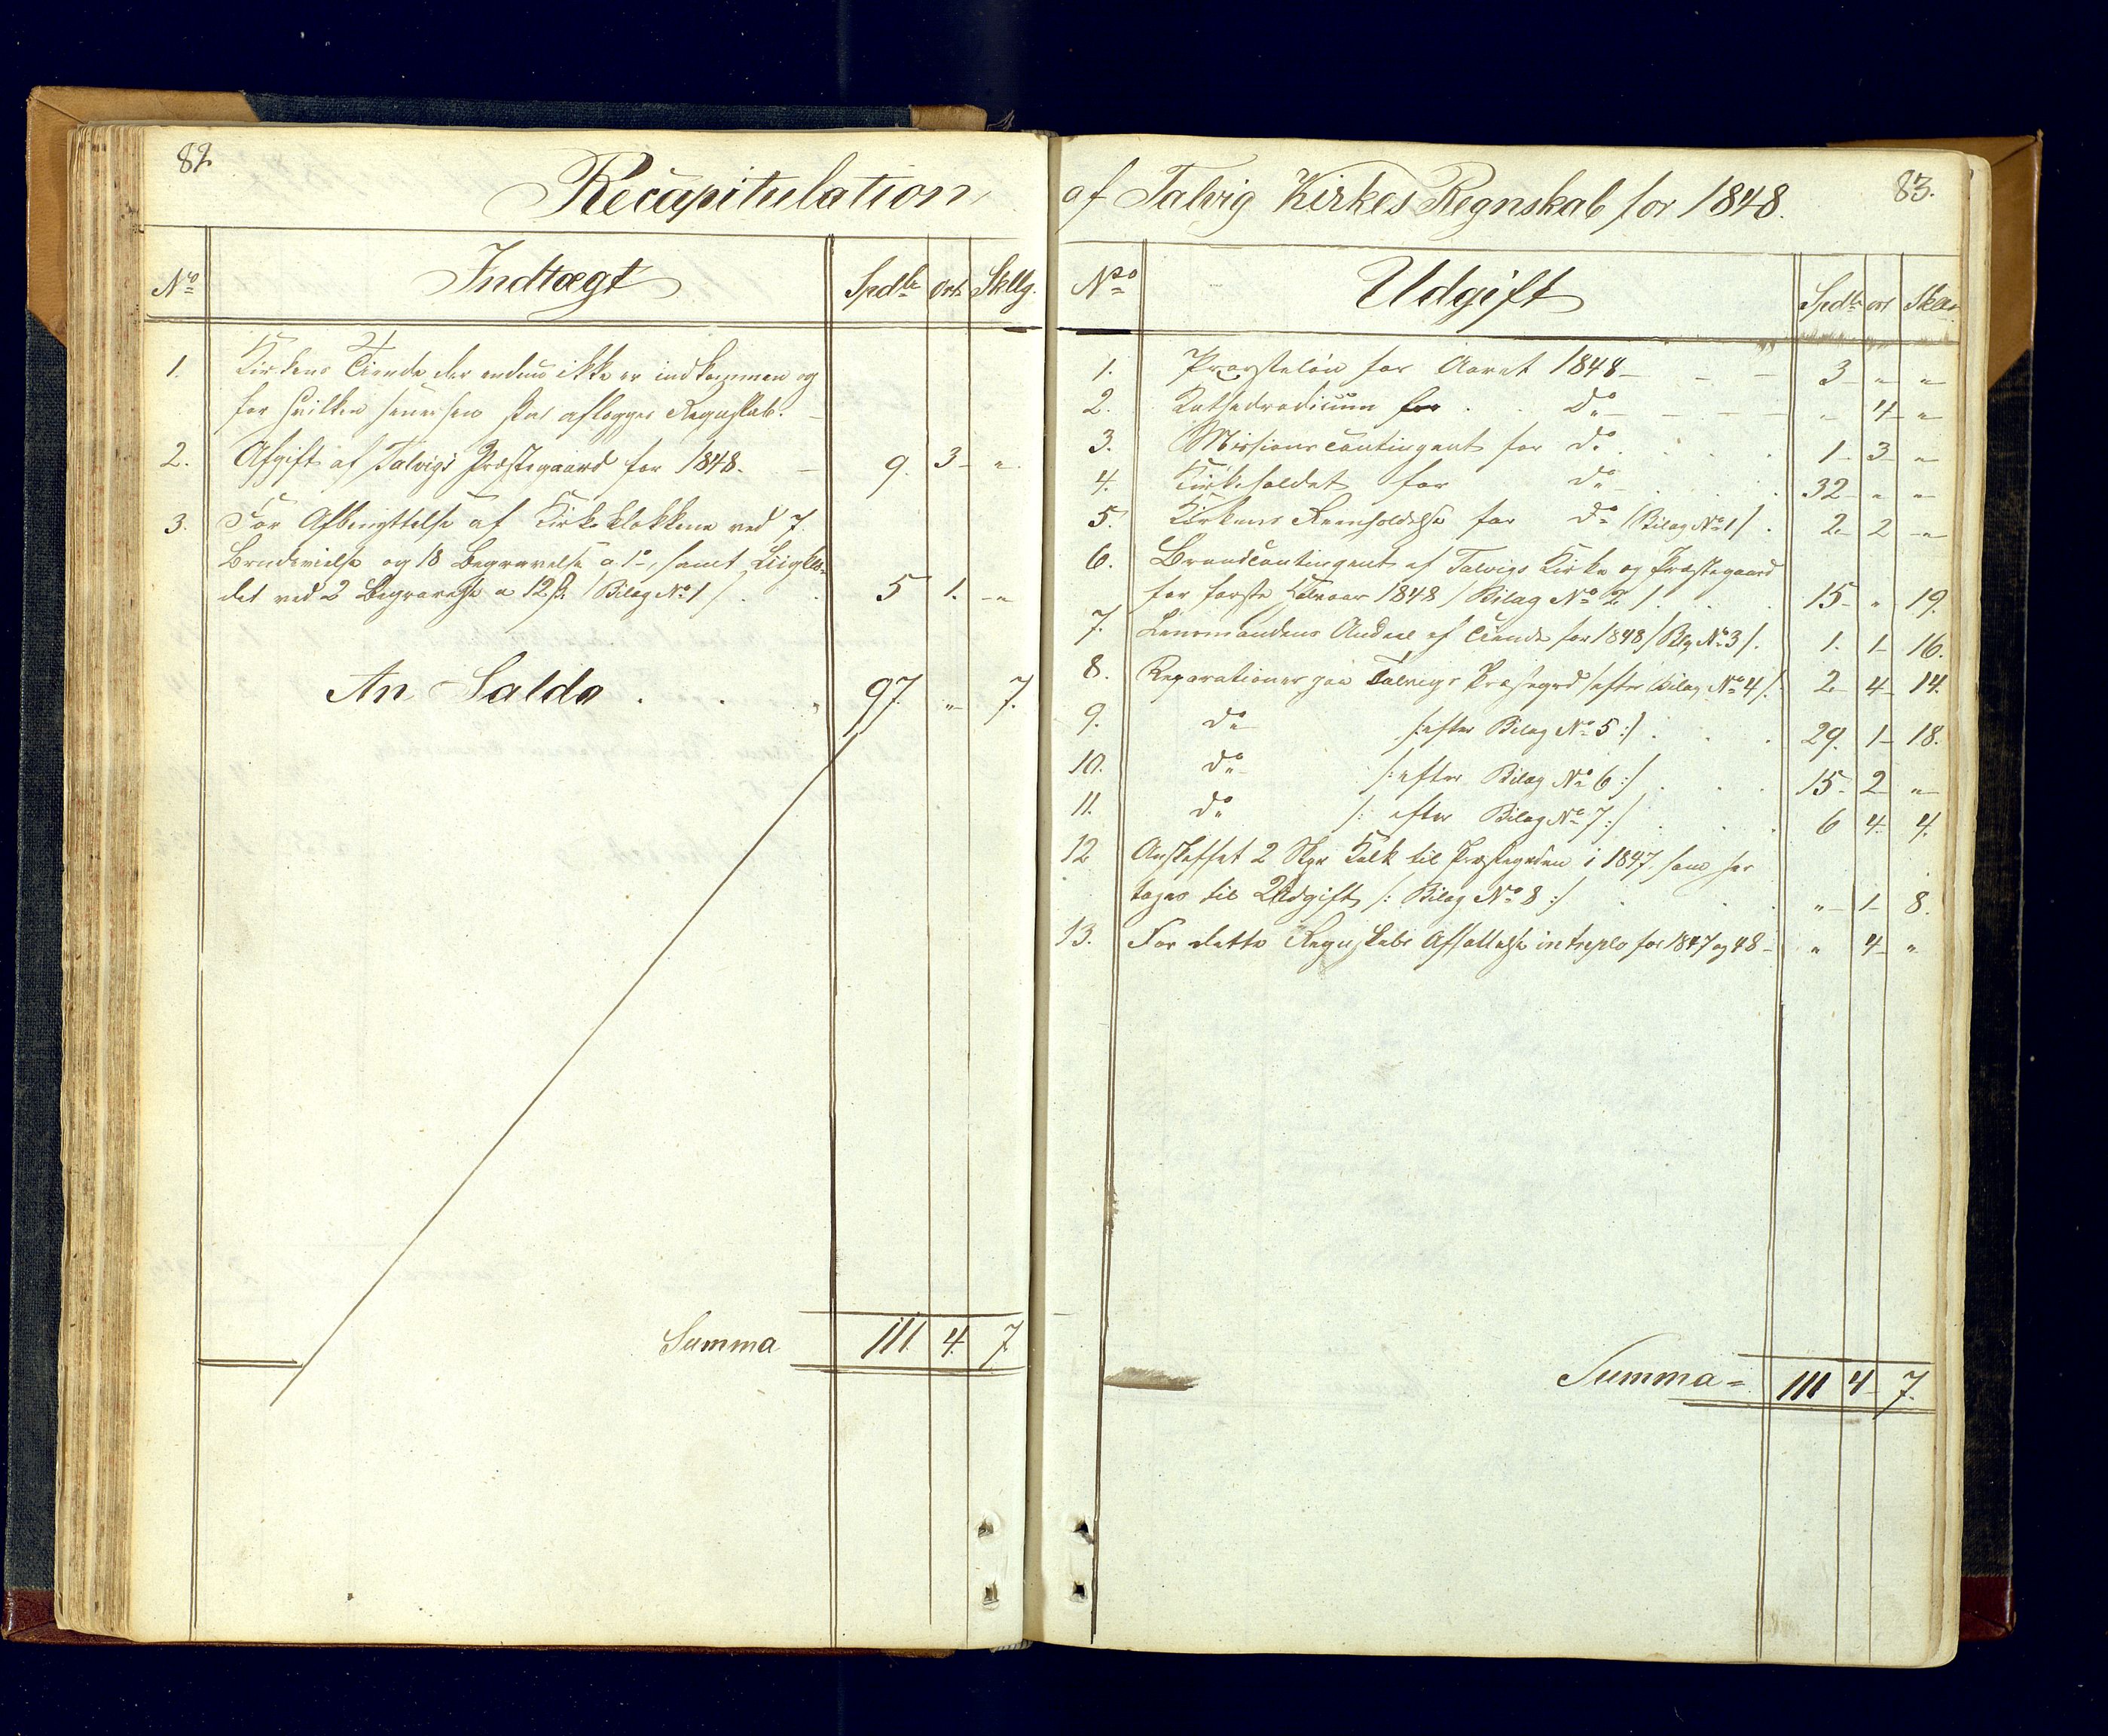 82.
Recapitulation
No Indtægt Spdlr Ort Skllg.
1. Kirkens Tiende der endnu ikke er indkommen og
for hvilken senerhen skal aflægges Regnskab. –
2. Afgift af Talvigs Præstegaard for 1848. – 9. 3 – "
3. For Afbenyttelse af Kirkeklokkene ved 7
Brudevielse og 18 Begravelse a 1o, samt Liigklæ-
det ved 2 Begravelse a 12 ß. / Bilag No 1 / . . 5 1. – "
An Saldo . . " 97. " 7.
Summa 111. 4. 7
83.
af Talvig Kirkes Regnskab for 1848.
No Udgift Spdlr ort Skill
1. Provsteløn for Aaret 1848 – – – 3 – " – "
2. Kathedradicum for . . do – – – " 4 – "
3. Missionscontingent for do . . . . 1 – 3 – "
4. Kirkeholdet for do . . . 32 – " – "
5. Kirkens Reenholdelse for do / Bilag No 1 / . 2 – 2 – "
6. Brandcontingent af Talvigs Kirke og Præstegaard
for første Halvaar 1848 / Bilag No 2 / . . . 15 – " 19.
7. Lensmandens Andeel af Tiende for 1848 / Blg No 3 / . 1. 1 – 16.
8. Reparationer paa Talvigs Præstegrd / efter Bilag No 4 / . 2 – 4 – 14.
9. do /: efter Bilag No 5 :/ . . . 29. 1 – 18.
10. do /: efter Bilag No 6 :/ . . . 15 – 2 "
11. do /: efter Bilag No 7 :/ . . . 6 4. 4.
12 Anskaffet 2 Kalk til Præstegården i 1847. som her
tages til Udgift /: Bilag No 8 :/ . . . " – 1 – 8.
13. For dette Regnskabs Affattelse in for 1847 og 48 – " 4 – "
Summa = 111 4 – 7.